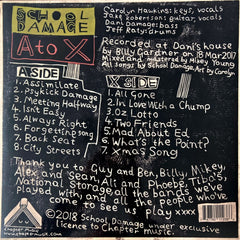 SCHOOL
DAMAGE
A to X
Carolyn Hawkins: keys, vocals
Jake Robertson: guitar, vocals
Dani Damage: bass
Jeff Raty: drums
Recorded at Dani's house
by Billy Gardner on 18 Mar 2017
Mixed and mastered by Mikey Young
All songs by School Damage, Art by Carolyn
A SIDE
1. Assimilate
2. Psykick Damage
3. Meeting Halfway
4. Isn't Easy
5. Always Right
6. Forgetting song
7. Back Seat
8. City Streets
X SIDE
1. All Gone
2. In Love With a Chump
3. Oz Lotto
4. Two Friends
5. Mad About Ed
6. What's the Point?
7. Xmas Song
Thank you to Guy and Ben, Billy, Mikey,
Alex and Sean, Ali and Phoebe, Tibbo's,
National Storage, all the bands we've
played with and all the people who've
come to see us play xxxx
©2018 School Damage under exclusive
licence to Chapter Music.
Chapter Music